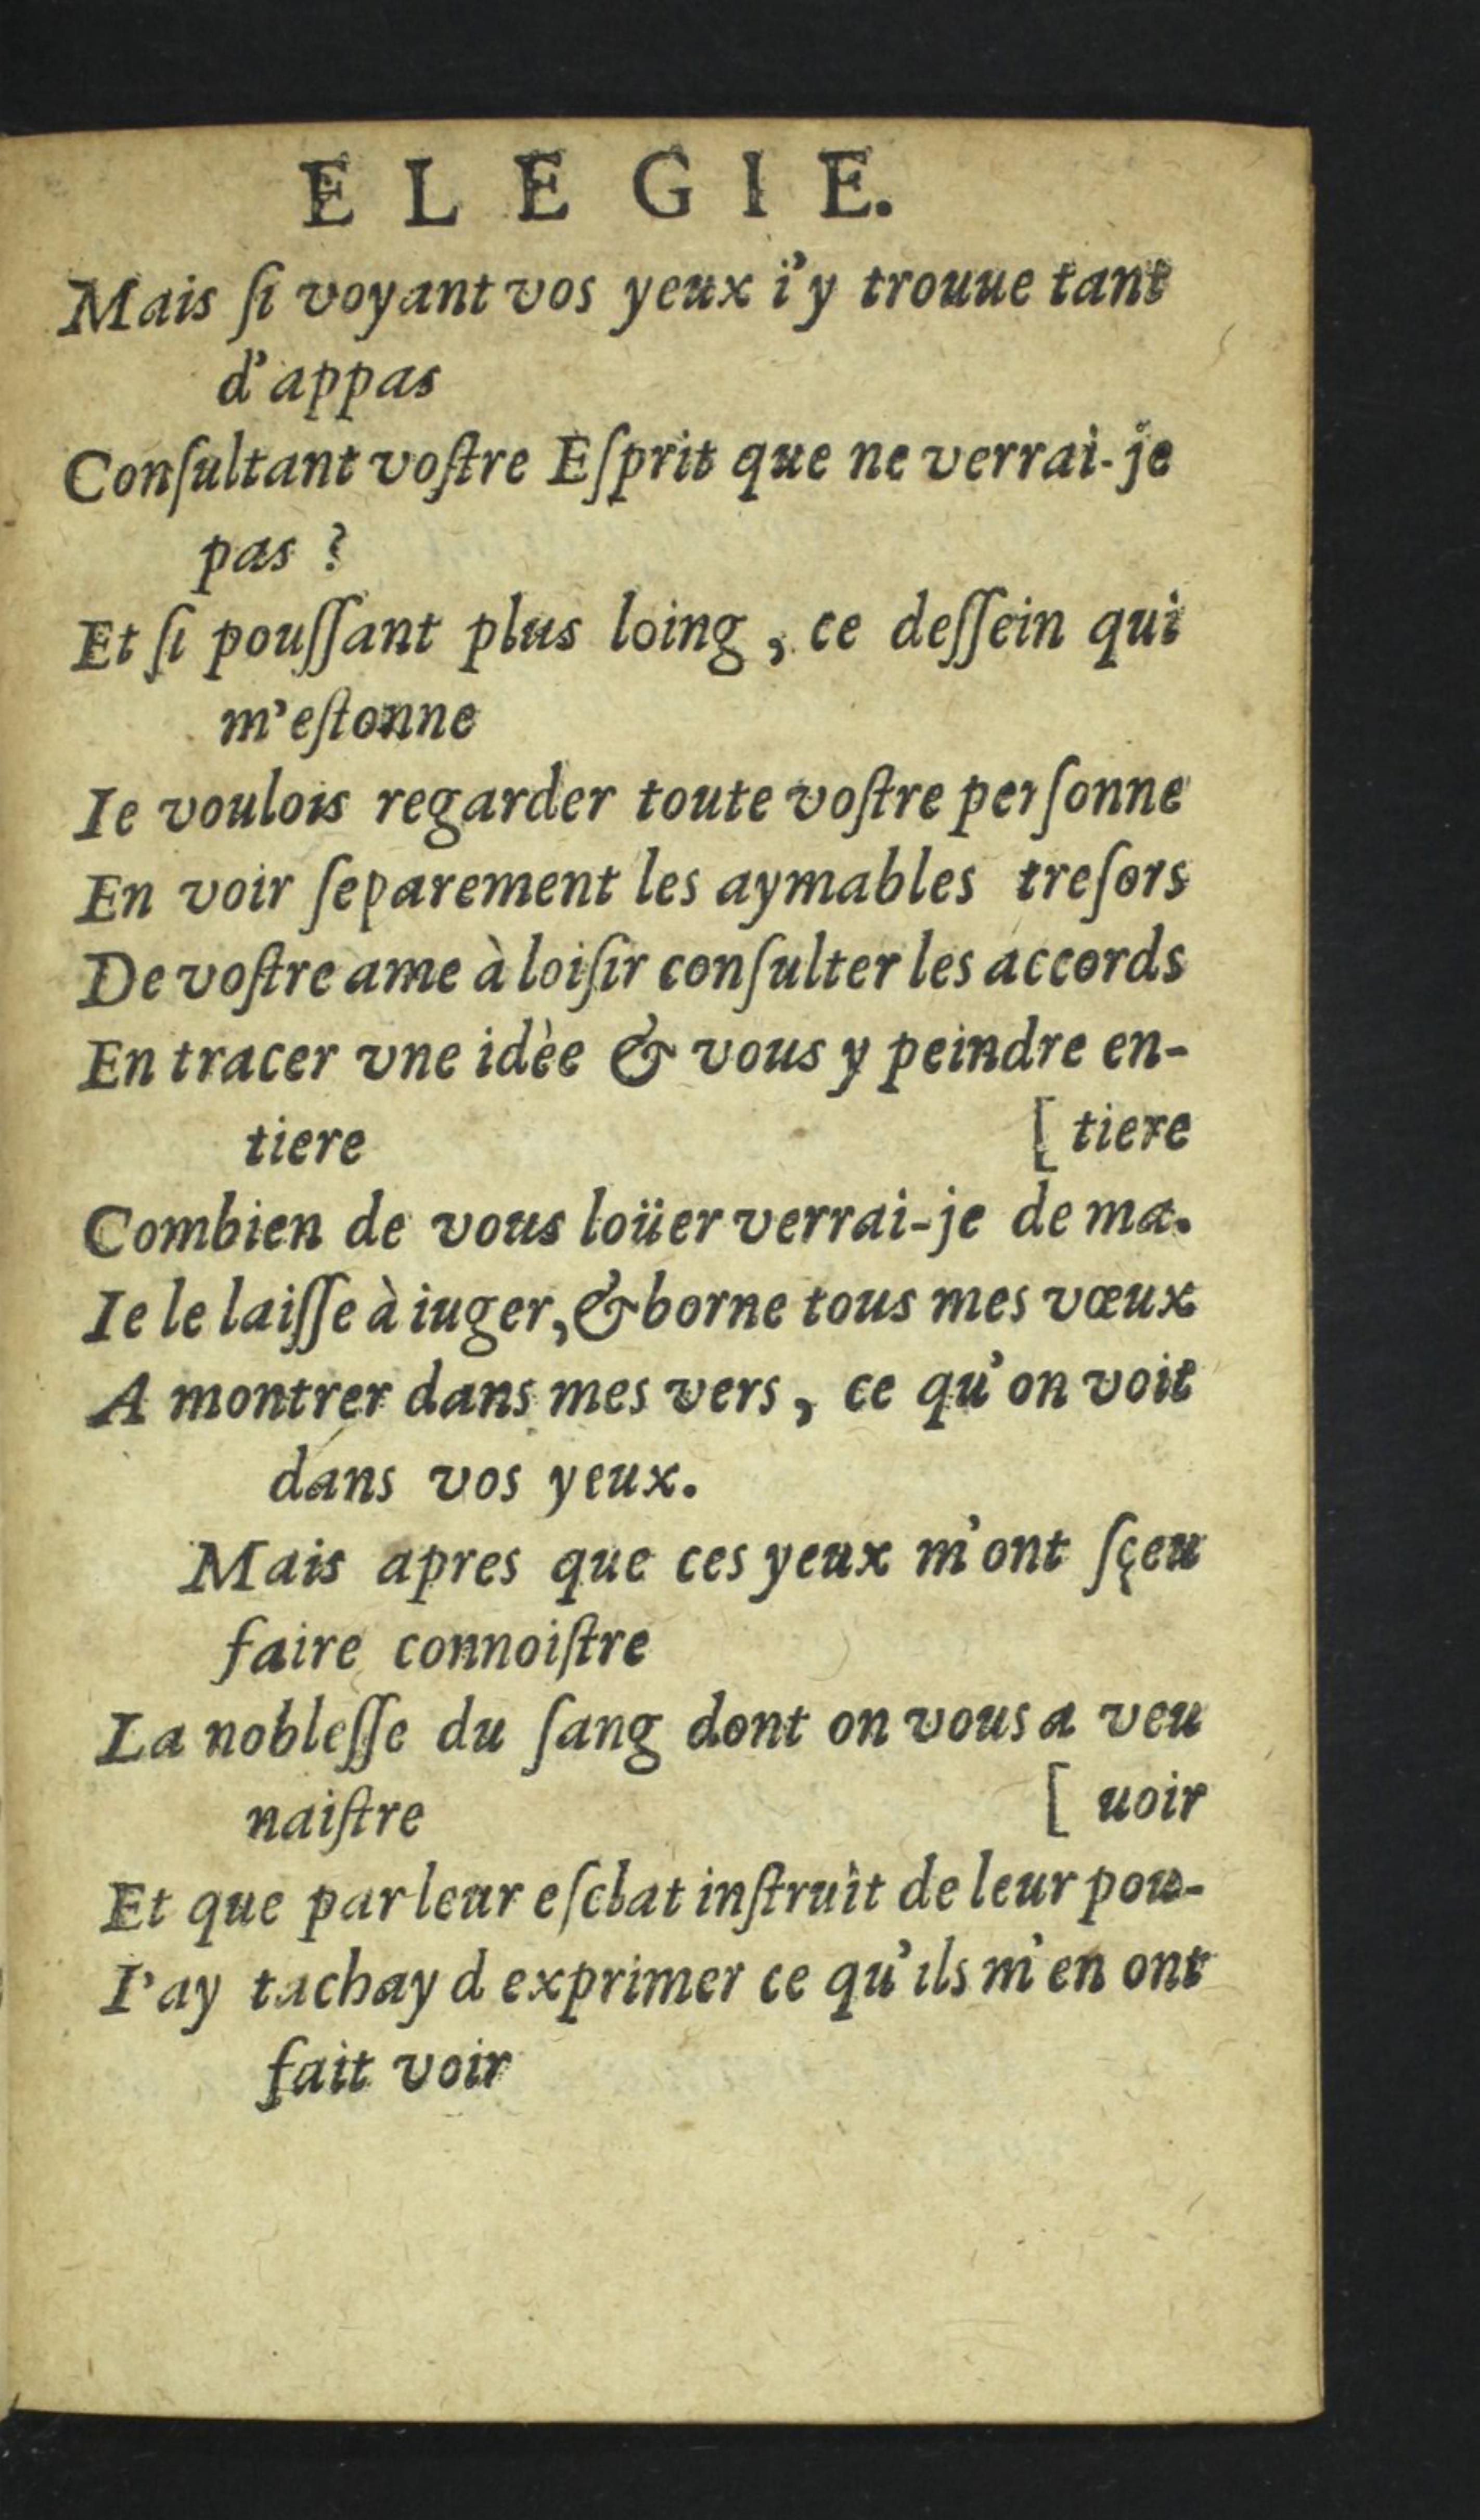 ELEGIE.
Mais ſi voyant vos yeux i'y trouue tant
d'appas
Conſultant voſtre Eſprit que ne verrai-je
pas ?
Et ſi pouſſant plus loing, ce deſſein qui
m'eſtonne
Ie voulois regarder toute voſtre perſonne
En voir ſeparement les aymables treſors
De voſtre ame à loiſir conſulter les accords
En tracer vne idèe & vous y peindre en-
tiere [ tiere
Combien de vous loüer verrai-je de ma.
Ie le laiſſe à iuger, & borne tous mes vœux
A montrer dans mes vers, ce qu'on voit
dans vos yeux.
Mais apres que ces yeux m'ont ſçeu
faire connoiſtre
La nobleſſe du ſang dont on vous a veu
naiſtre [ uoir
Et que par leur eſclat inſtruit de leur pou-
I'ay tachay d exprimer ce qu'ils m'en ont
fait voir